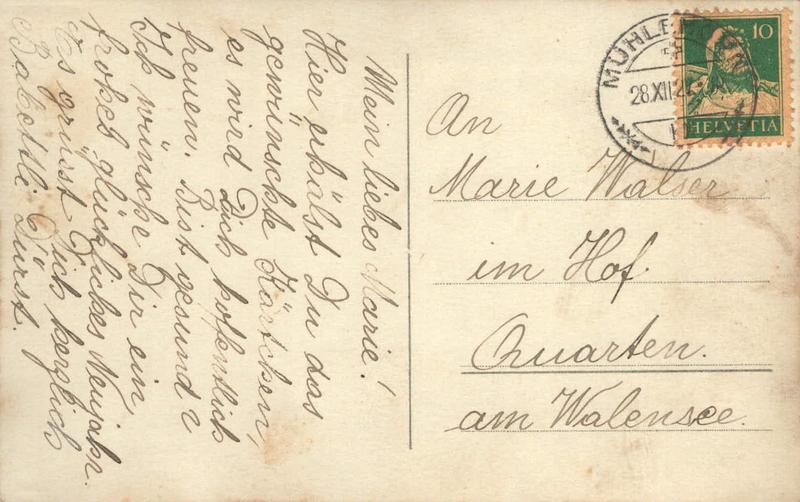 Mein liebes Marie!
Hier erhälst Du das
gewünschte Kärtchen,
es wird Dich hoffentlich
freuen. Bist gesund?
Ich wünsche Dir ein
frohes glückliches Neujahr.
Es grüsst Dich herzlich
Babettli Dürst.
An
Marie Walser
im Hof.
Quarten.
am Walensee.
28.XII.2
10
HELVETIA